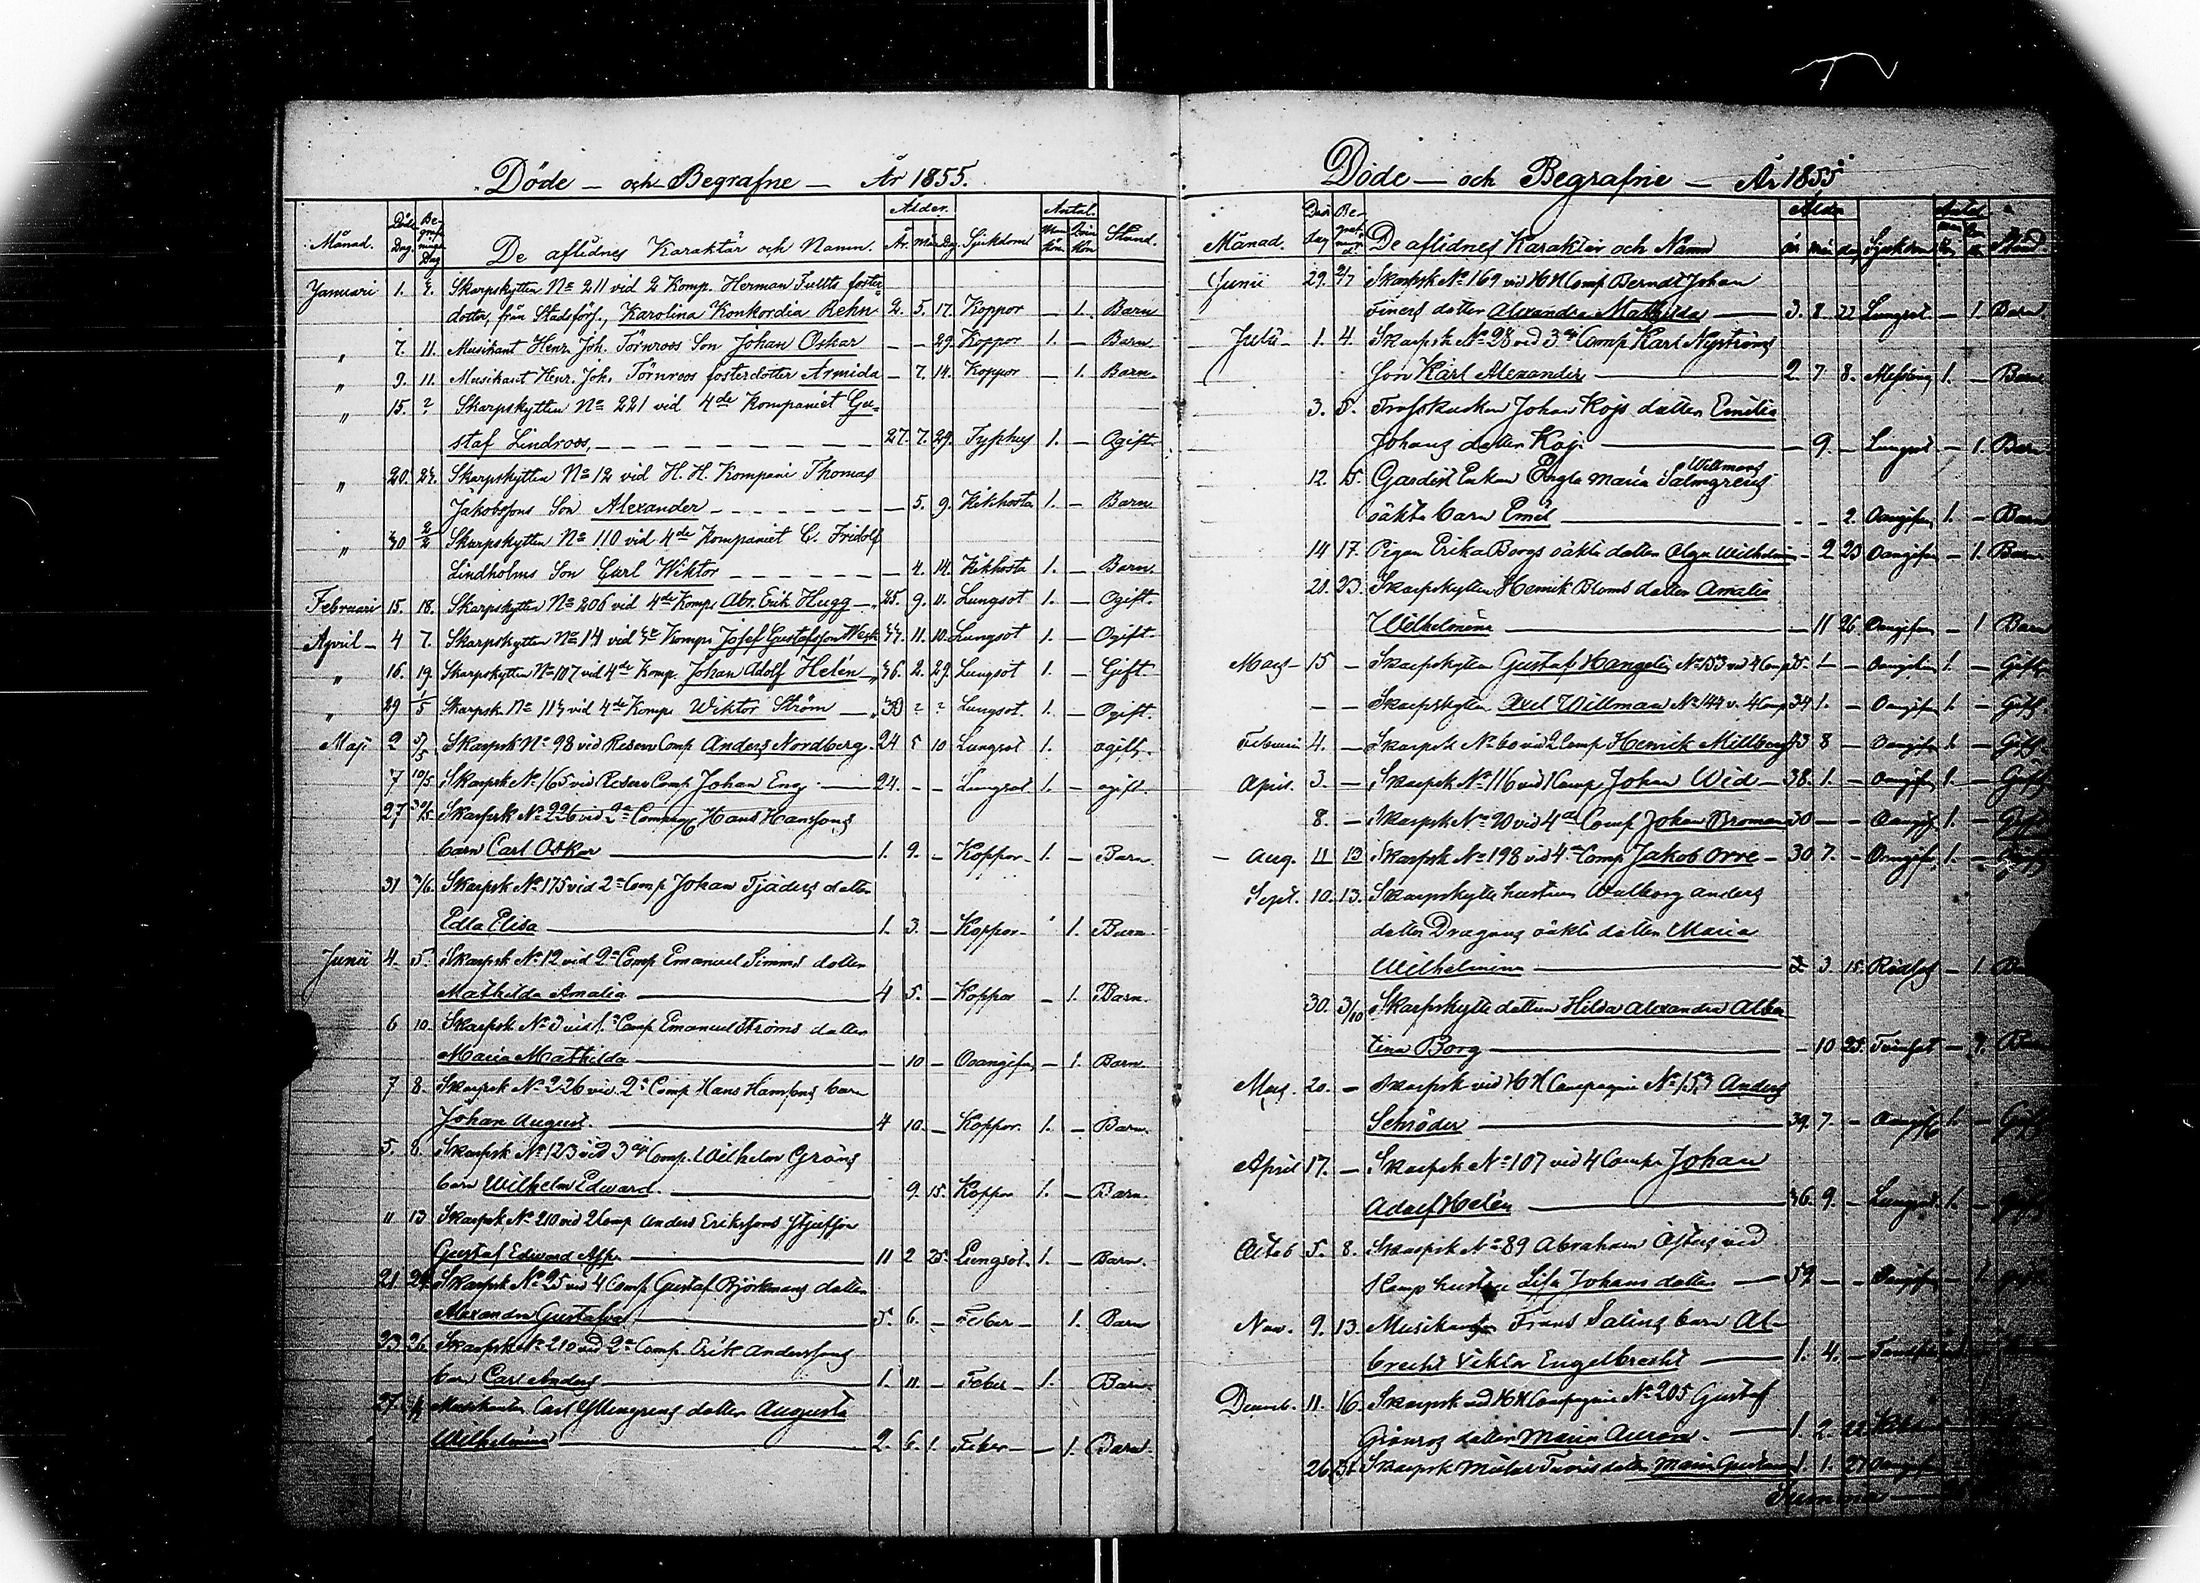 Döde – och Begrafne – År 1855.
Månad. Döds Dag. Begrafnings Dag De aflidnes Karaktär och Namn. Ålder. År. Mån. Dag. Sjukdom Antal. Mankön. Qvinkön Stånd.
Januari 1. Skarpskytten No 211 vid 2 Komp. Herman Fults foster-
dotter, från Stadsförs., Karolina Konkordia Rehn 2. 5. 17. Koppor – 1. Barn
" 7. 11. Musikant Henr. Joh. Törnroos Son Johan Oskar – – 29. Koppor 1. – Barn
" 9. 11. Musikant Henr. Joh. Törnroos fosterdotter Armida – 7. 14. Koppor – 1. Barn
" 15. ? Skarpskytten No 221 vid 4de Kompaniet Gu-
staf Lindroos, 27. 7. 29. Typhus 1. – Ogift.
" 20. 24. Skarpskytten No 12 vid H. H. Kompani Thomas
Jakobssons Son Alexander – 5. 9. Kikhosta 1. – Barn
" 30 2/2 Skarpskytten No 110 vid 4de Kompaniet C. Fridolf
Lindholms Son Carl Wiktor – 4. 14. Kikhosta 1. – Barn.
Februari 15. 18. Skarpskytten No 206 vid 4de Komp. Abr. Erik Hugg – 25. 9. 11. Lungsot 1. – Ogift.
April – 4 7. Skarpskytten No 14 vid Komp. Josef Gustafsson 11. 10. Lungsot 1. – Ogift.
" 16. 19. Skarpskytten No 107 vid 4de Komp. Johan Adolf Helén – 36. 2. 29. Lungsot 1. – Gift.
" 29 1/5 Skarpsk. No 114 vid 4de Komp. Wiktor Ström – ? ? Lungsot. 1. – Ogift.
Maji 2 5/5 Skarpsk No 98 vid Reserv Comp Anders Nordberg. 24 5 10 Lungsot 1. ogift.
7 10/5 Skarpsk No 165 vid Reserv Comp Johan Eng 24. – – Lungsot 1. – ogift.
27 30/5 Skarpsk No 226 vid 2a Comp Hans Hanssons
barn Carl Oskar 1. 9. – Koppor – 1. – Barn
31 3/6. Skarpsk No 175 vid 2a Comp Johan Tjäders dotter
Edla Elisa 1. 3. – Koppor – 1. Barn
Junii 4. 5. Skarpsk No 12 vid 2a Comp Emanuel Simms dotter
Mathilda Amalia 4 5. – Koppor – 1. Barn.
6 10. Skarpsk No 3 vid 1. Comp Emanuel Ströms dotter
Maria Mathilda – 10 – Oangifen – 1. Barn
7 8. Skarpsk No 226 vid 2a Comp Hans Hanssons barn
Johan August. 4 10. – Koppor. 1. – Barn.
5. 6. Skarpsk No 123 vid 3dje Comp. Wilhelm Gröns
barn Wilhelm Edward. 9. 15. Koppor 1. – Barn.
11 13 Skarpsk No 210 vid 2 Comp Anders Erikssons Styfson
Gustaf Edward 11 2 25. Lungsot. 1. – Barn.
21 24. Skarpsk No 25 vid 4 Comp Gustaf Björkmans dotter
Alexandra Gustafva 5. 6. – Feber – 1. Barn
23 26. Skarpsk No 210 vid 2a Comp. Erik Anderssons
barn Carl Anders 1. 11. – Feber – 1. Barn.
27. Musikanten Carl dotter Augusta
Wilhelmina 2. 6. 1. Feber – – 1. Barn.
Döde – och Begrafne – År 1855
Månad. De aflidnes Karaktär och Namn Ålder år mån dag Sjukdom Antal Stånd.
Junii 29. 2/7 Skarpsk No 169 vid HH Comp Berndt Johan
Finers dotter Alexandra Mathilda 3. 8 22 Lungsot – 1 Barn
Julii – 1. 4. Skarpsk No 28 vid 3dje Comp Karl Nyströms
Son Karl Alexander 2. 7 8. 1. – Barn
3. 5. Trosskusken Johan Kojs dotter Emilia
Johans dotter Koji – 9. – Lungsot – 1. Barn
12. 15. Gardist Enkan Engla Maria Salmgrens Willmans
oäkta barn Emil – – 2. Oangifen 1. – Barn
14 17. Pigan Erika Borgs oäkta dotter Olga Wilhelmina – 2 23 Oangifen – 1. Barn
21. 23. Skarpskytten Henrik Bloms dotter Amalia
Wilhelmina – 11 26 Oangifen – 1 Barn
Mars – 15 – Skarpskytten Gustaf Hangelin No 153 vid 4 Comp 1 – Oangifen 1. – Gift.
– – Skarpskytten Axel Willman No 144 v. 4 Comp 34 1. – Oangifen 1. – Gift
Februari 4. – Skarpsk No 60 vid 2 Comp Henrik Millberg 43 8 – Oangifen 1. – Gift.
April. 3. – Skarpsk No 116 vid 1 Comp Johan Wid – 38. 1. – Oangifen 1. – Gift
8. – Skarpsk No 20 vid 4a Comp Johan Broman 30 – – Oangif 1. –
– Aug. 11 13 Skarpsk No 198 vid 4a Comp Jakob Orre – 30 7. – Oangif. 1. –
Sept. 10. 13. Skarpskytte hustrun Walborg Anders
dotter Dragons oäkta dotter Maria
Wilhelmina 2 3. 15. Rödsot – 1.
30. 3/10 Skarpskytte dottern Hilda Alexandra Alber
tina Borg – 10 25. – Barn
Maj. 20. – Skarpsk vid HH Compagnie No 153 Anders
Schröder 39. 7. – 1. –
April 17. – Skarpsk No 107 vid 4 Comp Johan
Adolf Helén 36. 9. – Lungsot. 1. –
Octob 5. 8. Skarpsk No 89 Abraham vid
Komp hustru Lisa Johans dotter 59 – – Oangifen – 1
Nov. 9. 13. Musikanten Frans Salins barn Al-
brecht Viktor Engelbrecht 1. 4. –
Decemb. 11. 16. Skarpsk vid HH Compagnie No 205 Gustaf
Grönros dotter Maria Aurora. 1. 2.
26. 31 Skarpsk dotter Maria 1. 1. 27
Summa